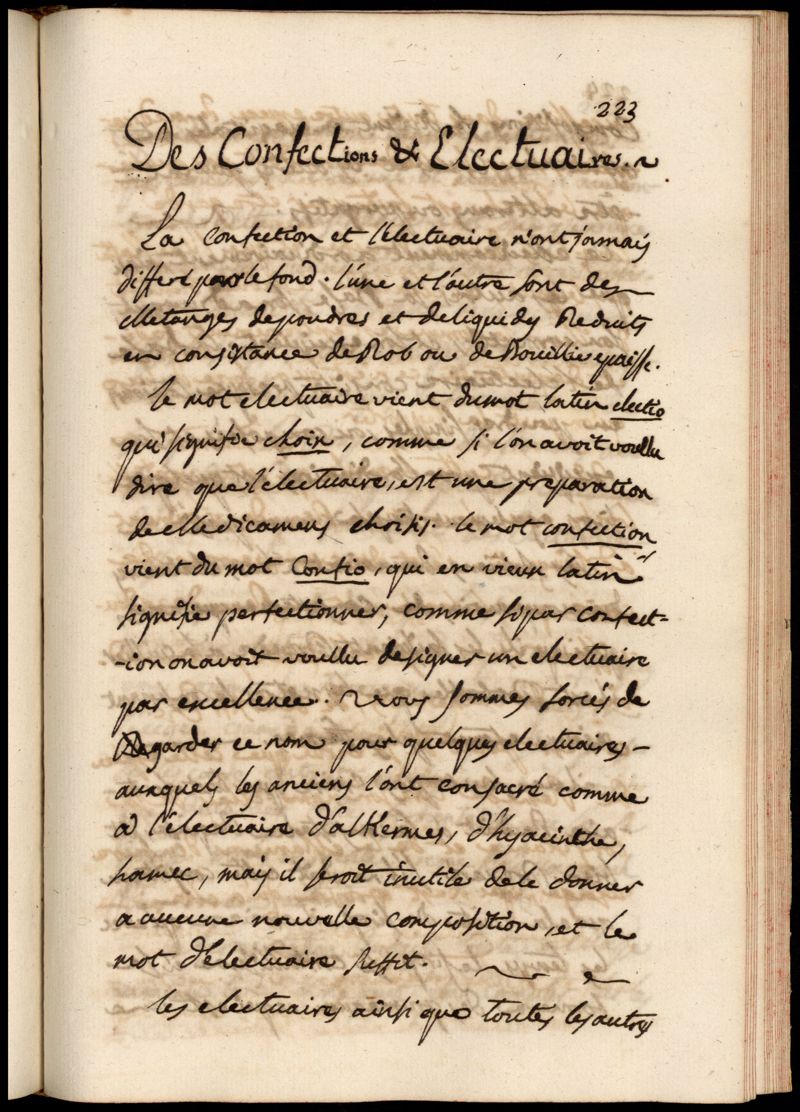 223
Des Confections & Electuaires.
La confection et l'électuaire n'ont jamais
differé par le fond. l'une et l'autre sont des
Melanges de poudres et de liquides Reduits
en consistance de Rob ou de Bouillie epaisse.
le mot electuaire vient du mot latin electio
qui signifie choix, comme si l'on avoit voullu
dire que l'électuaire, est une preparation
de Medicamens choisis. le mot confection
vient du mot Confio, qui en vieux latin
signifie perfectionner, comme si par confect-
-ion on avoit voullu designer un electuaire
par excellence. Nous sommes forcés de
Regarder ce nom pour quelques electuaires
auxquels les anciens l'ont consacré comme
à l'électuaire d'alKermes, d'hyacinthe,
hamec, mais il seroit inutile de le donner
a aucune nouvelle composition, et le
mot d'électuaire suffit.
les electuaires ainsi que toutes les autres